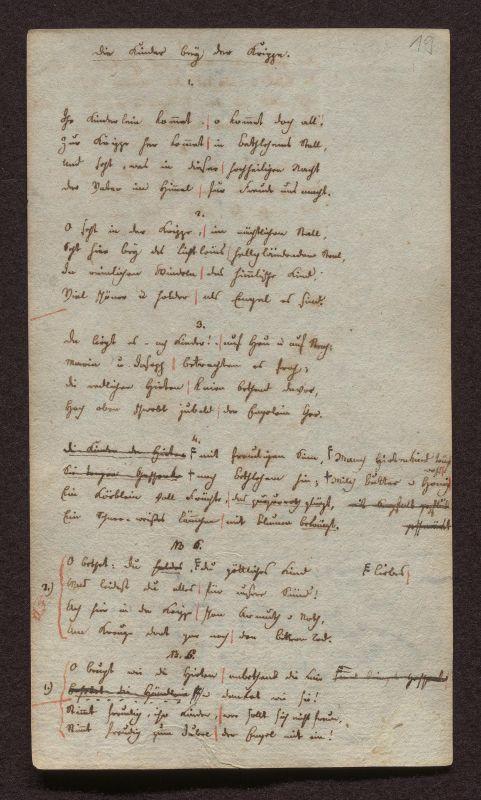 19
Die Kinder bey der Krippe.
1.
Ihr Kinderlein kom̄et, | o kom̄et doch all'!
Zur Krippe her kom̄et | in Bethlehems Stall,
Und seht, was in dieser | hochheiligen Nacht
Der Vater im Him̄el | für Freude uns macht.
2.
O seht in der Krippe, | im nächtlichen Stall,
Seht hier bey des Lichtleins | hellglänzendem Stral,
In reinlichen Windeln | das him̄lische Kind,
Viel schöner u holder | als Engel es sind.
3.
Da liegt es – ach Kinder! | auf Heu u auf Stroh;
Maria u. Joseph | betrachten es froh;
Die redlichen Hirten | knien bethend davor,
Hoch oben schwebt jubelnd | der Engelein Chor.
4.
Die Kinder der Hirten F mit freudigem Sinn, F Manch Hirtenkind trägt
† nach Bethlehem hin; † Milch, Butter u Honig
Ein Körblein voll Früchte, | das ziert,
Ein Schnee weißes Läm̄chen | mit Blumen bekränzt.
N 6.
O bethet: du F du göttliches Kind F liebes,
2.) Was leidest du alles | für unsere Sünd'!
Ach hier in der Krippe | schon Armuth u Noth,
Am Kreuze dort gar noch | den bittern Tod.
N. 5.
O beugt wie die Hirten | anbethend die Knie
1.) danket wie sie!
Stim̄t freudig, ihr Kinder, | wer sollt sich nicht freun,
Stim̄t freudig zum Jubel | der Engel mit ein!